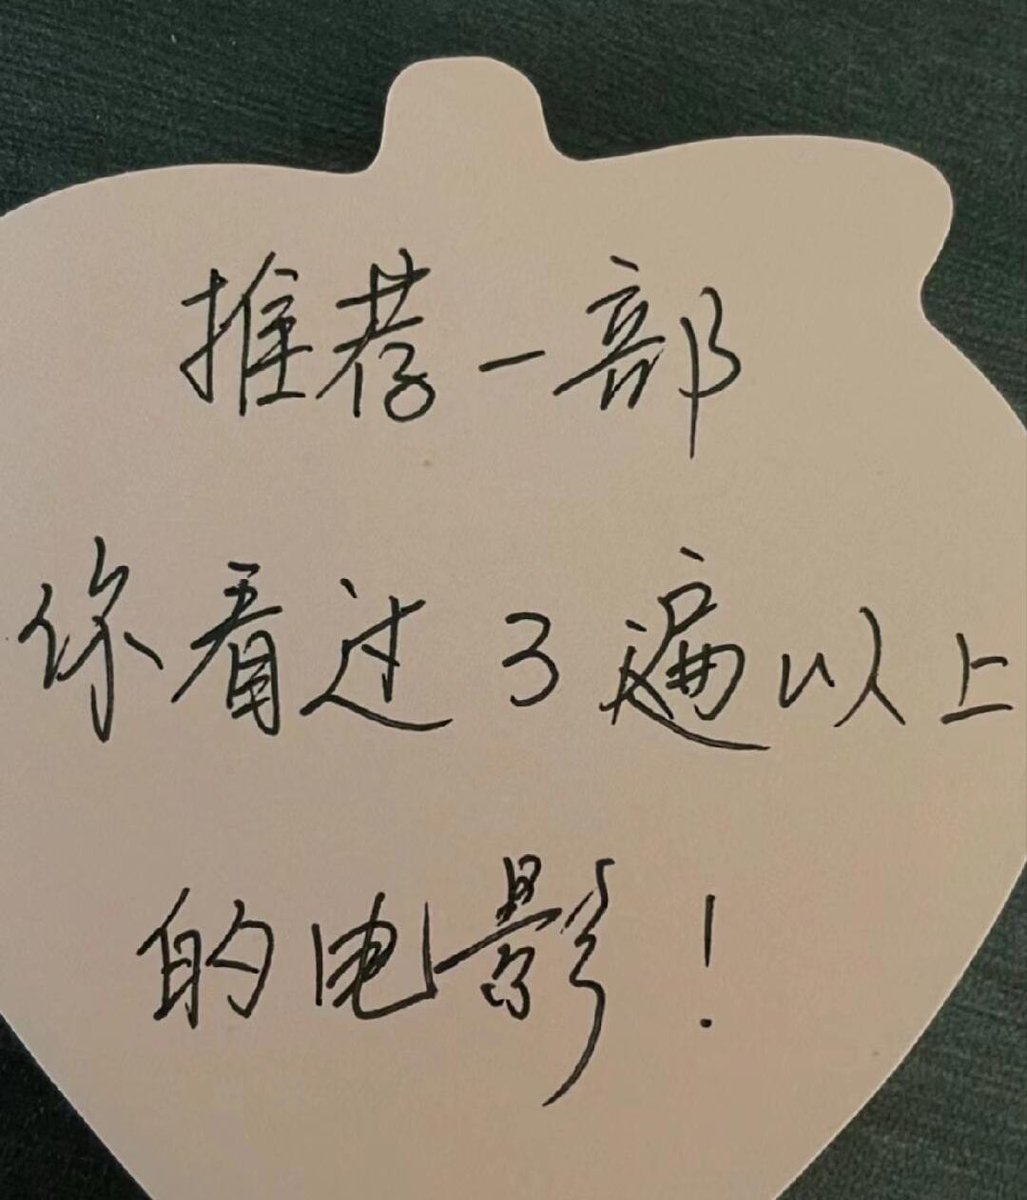 推荐一部
你看过3遍以上
的电影！